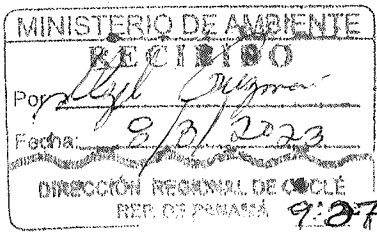 MINISTERIO DE AMBIENTE
RECIBIDO
Por: Guzmán
Fecha: 8/3/2023
DIRECCIÓN REGIONAL DE COCLÉ
REP. DE PANAMÁ 9:37